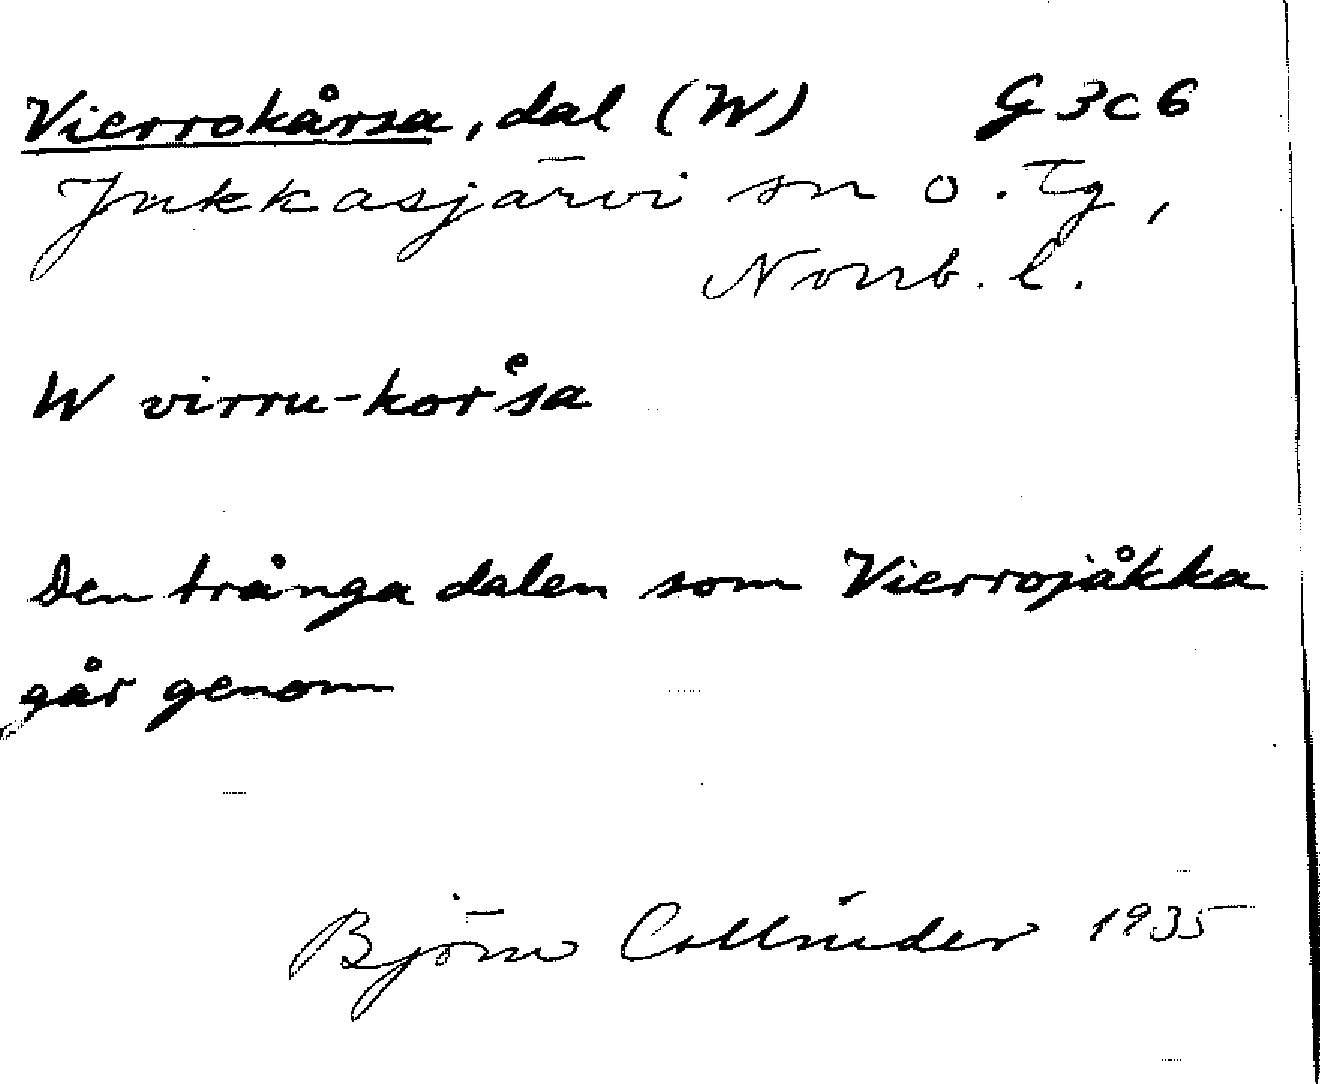 Vierrokårsa, dal (W) G 3 c 6
Jukkasjärvi sn o. Tg,
Norrb. l.
W virru-korᵉsa
Den trånga dalen som Vierrojåkka
går genom
Björn Collinder 1935